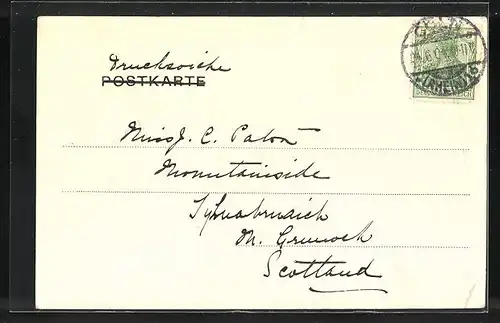 Drucksache
POSTKARTE
Miss J. C. Paton
Mountainside
Nr. Greenock
Scotland